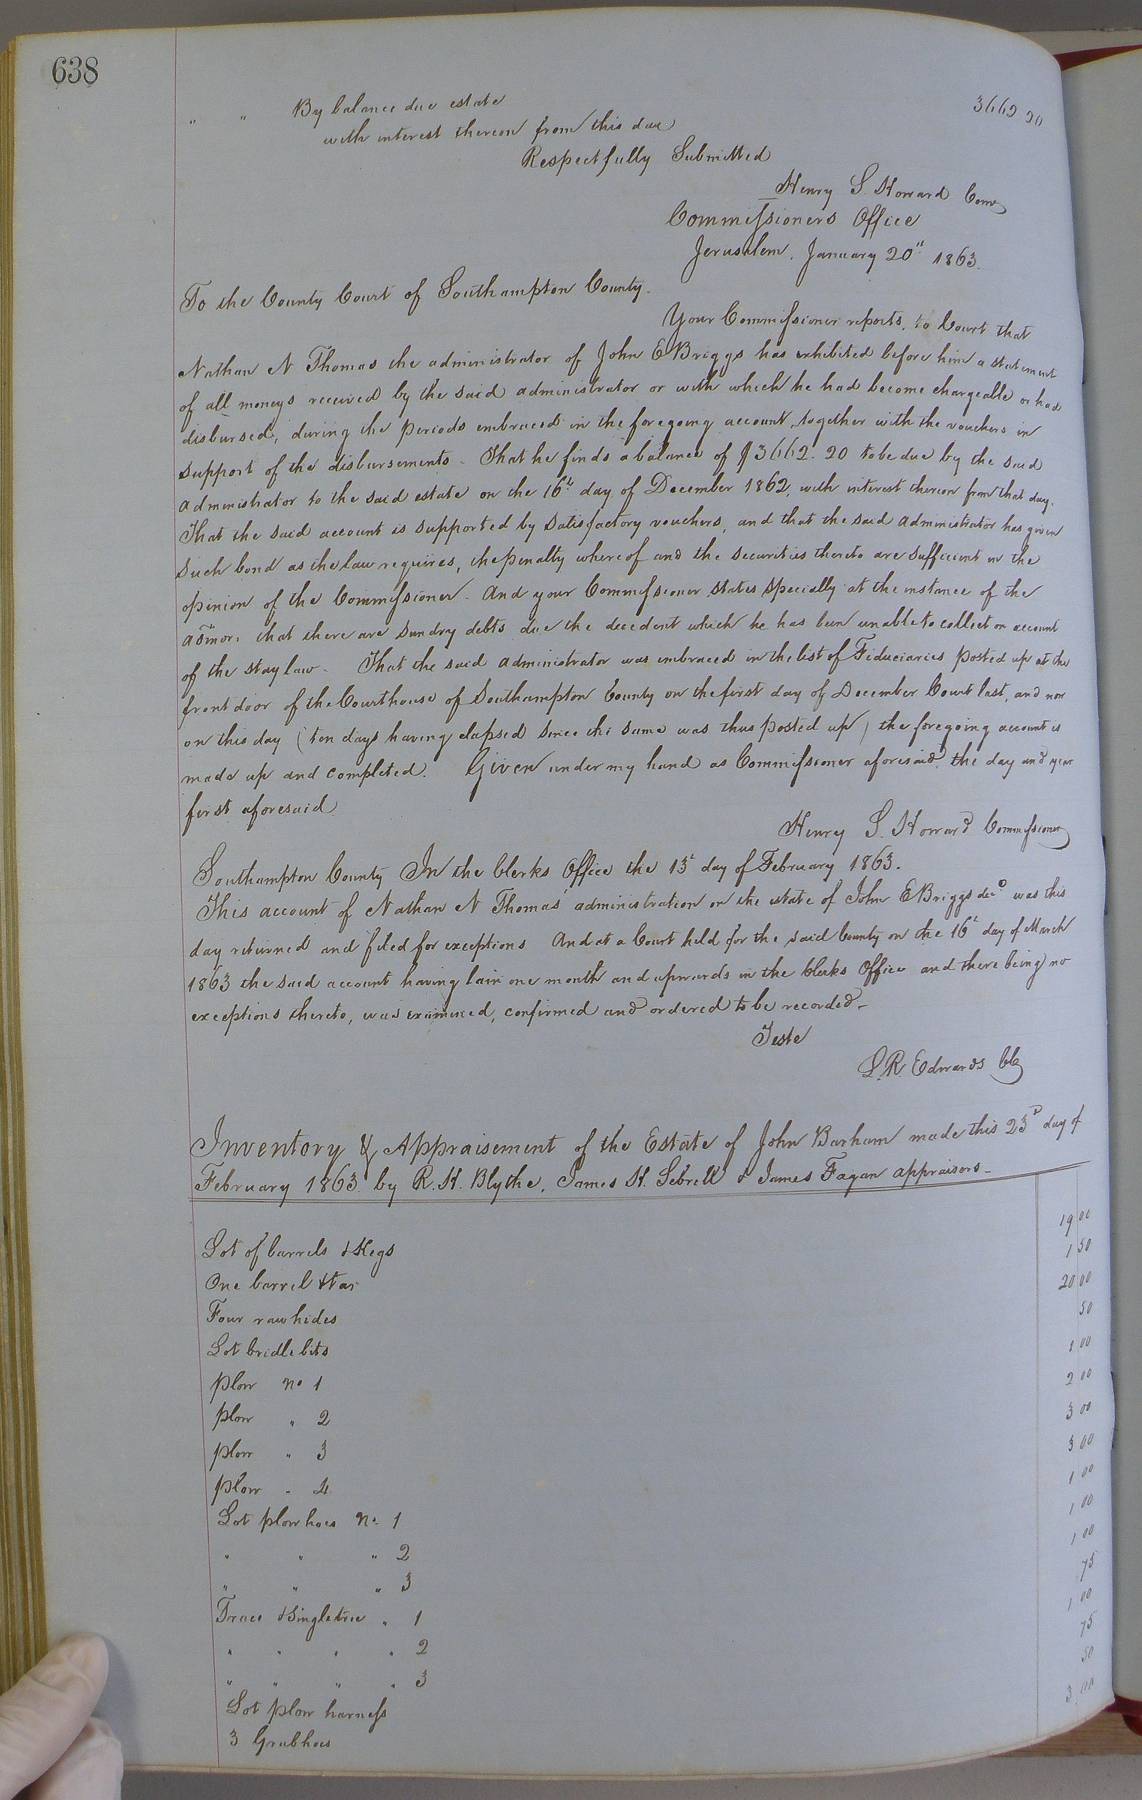 638
" " By balance due estate 3662 20
with interest thereon from this date
Respectfully Submitted
Henry S. Howard Comr
Commissioners Office
Jerusalem, January 20" 1863.
To the County Court of Southampton County.
Your Commissioner reports, to Court that
Nathan N Thomas the administrator of John E Briggs has exhibited before him a statement
of all moneys received by the said administrator or with which he had become chargeable or has
disbursed, during the periods embraced in the foregoing account, together with the vouchers in
support of the disbursements - That he finds a balance of $3662.20 to be due by the said
administrator to the said estate on the 16th day of December 1862, with interest thereon from that day.
That the said account is supported by satisfactory vouchers, and that the said administrator has given
such bond as the law requires, the penalty whereof and the securities thereto are sufficient in the
opinion of the Commissioner - And your Commissioner states specially at the instance of the
admor: that there are sundry debts due the decedent which he has been unable to collect on account
of the stay law - That the said administrator was embraced in the list of Fiduciaries posted up at the
front door of the Courthouse of Southampton County on the first day of December Court last, and now
on this day (ten days having elapsed since the same was thus posted up) the foregoing account is
made up and completed. Given under my hand as Commissioner aforesaid, the day and year
first aforesaid.
Henry S. Howard Commissioner
Southampton County In the Clerks Office the 13th day of February 1863.
This account of Nathan N Thomas administration on the estate of John E Briggs decd was this
day returned and filed for exceptions And at a Court held for the said County on the 16th day of March
1863 the said account having lain one month and upwards in the Clerks Office and there being no
exceptions thereto, was examined, confirmed and ordered to be recorded -
Teste
L.R. Edwards Clk
Inventory & Appraisement of the Estate of John Barham made this 23d day of
February 1863 by R. H. Blythe, James H. Sebrell & James Fagan appraisors -
Lot of barrels & Kegs 19 00
One barrel & tar 1 50
Four rawhides 20 00
Lot bridle bits 50
plow no 1 1 00
plow " 2 2 00
plow " 3 3 00
plow " 4 3 00
Lot plow hoes No 1 1 00
" " " 2 1 00
" " " 3 1 00
Trace & Singletree " 1 75
" " " " 2 1 00
" " " " 3 75
Lot plow harness 50
3 Grubhoes 3 00